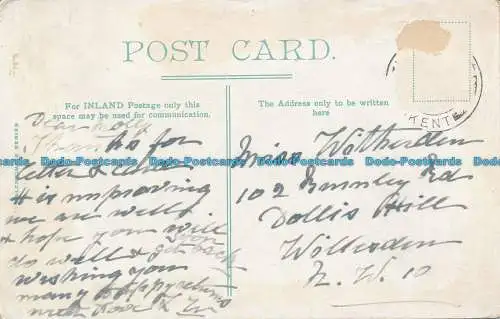 POST CARD.
For INLAND Postage only this
space may be used for communication.
The Address only to be written
here
KENT
Dear Molly
Thanks for
letter & card
H is improving
we are well
& hope you will
do well & get back
soon
wishing you
many happy returns
with love
Miss Witherden
102 Rd
Dollis Hill
Willesden
N. W. 10
Dodo-Postcards Dodo-Postcards Dodo-Postcards Dodo-Postcards